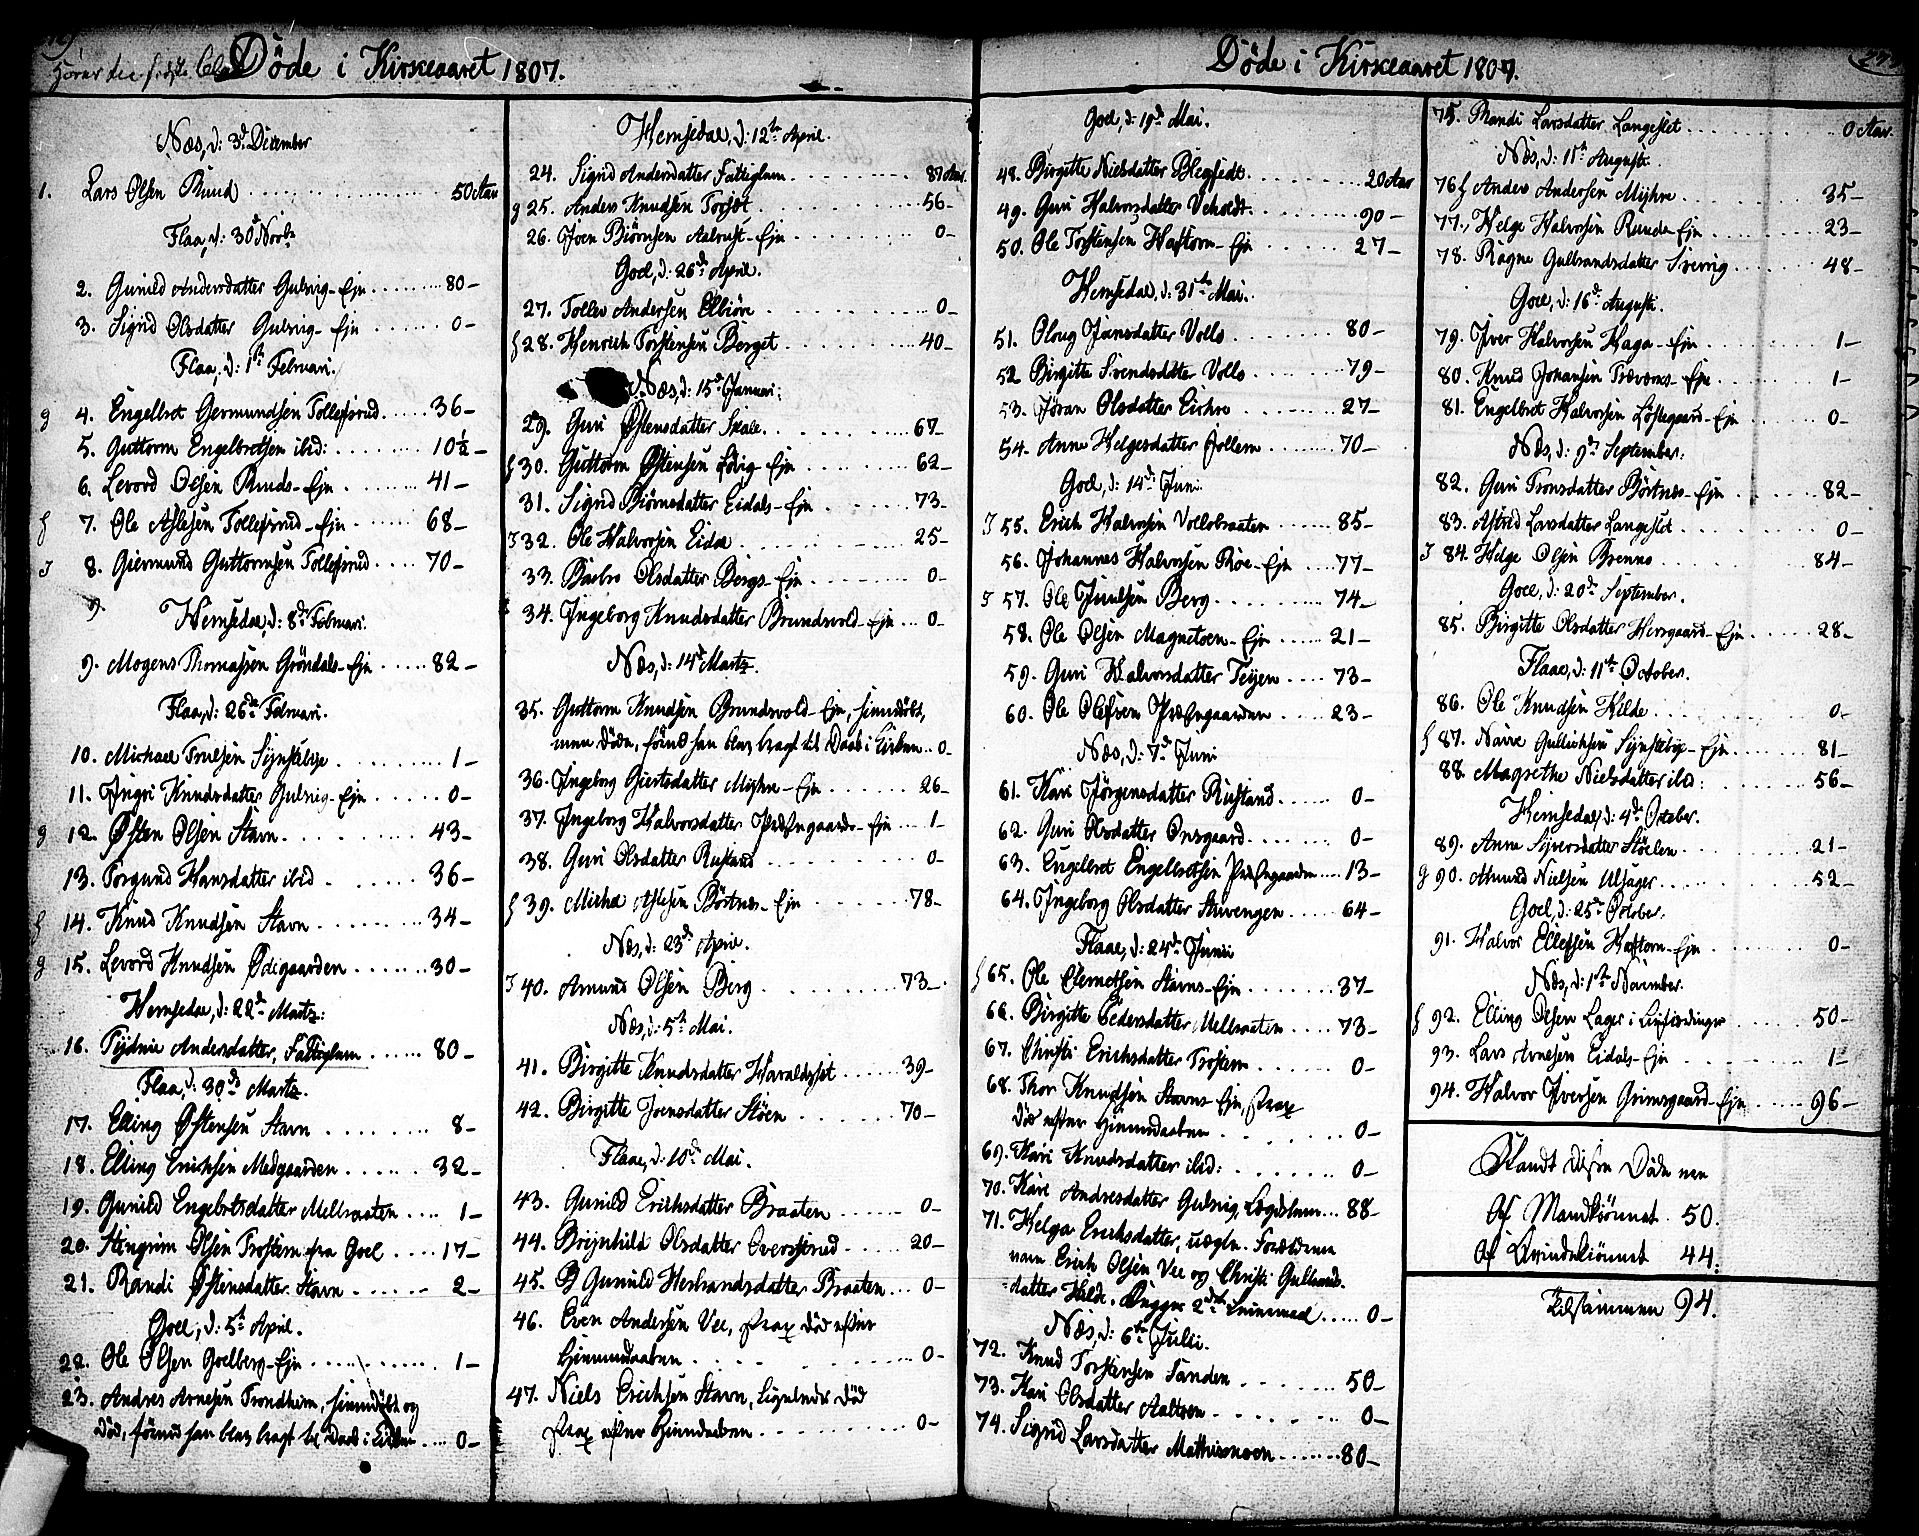 Døde i Kirkeaaret 1807.
Næs, d: 3d December
1. Lars Olsen Ruud 50 Aar
Flaa, d: 30 Novb.
2. Gunild Andersdatter Gulsvig-Eje 80-
3. Sigrid Olsdatter Gulsvig-Eje 0-
Flaa, d: 1ste Februari.
g 4. Engelbret Germundsen Tollefsrud 36-
5. Guttorm Engelbretsen ibid: 10½-
6. Levord Olsen Ruuds-Eje 41-
f 7. Ole Aslesen Tollefsrud-Eje 68-
J 8. Giermund Guttormsen Tollefsrud 70-
9.
Hemsedal, d: 8de Februari.
9. Mogens Thomassen Gröndals-Eje 82-
Flaa, d: 26de Februari.
10. Michael Truelsen Sijnstebye 1-
11. Jngri Knudsdatter Gulsvig-Eje 0-
g 12. Østen Olsen Stavn 43-
13. Torgund Hansdatter ibid 36-
f 14. Knud Knudsen Stavn 34-
g 15. Levord Knudsen Ødegaarden 30-
Hemsedal, d: 22de Martz:
16. Andersdatter, Fattiglem 80-
Flaa, d: 30de Martz.
17. Elling Østensen Stavn 8-
18. Elling Erichsen Medgaarden 32-
19. Gunild Engebretsdatter Mellbraaten 1-
20. Stengrim Olsen Trostem fra Goel 17-
21. Randi Østensdatter Stavn 2-
Goel, d: 5te April.
22. Ole Olsen Goelberg-Eje 1-
23. Andres Arnesen Trondheim, hjemmdöbt og
död, förend han blev bragt til Daab i Kirken 0-
Hemsedal, d: 12te April.
24. Sigrid Andersdatter Fattiglem 87 Aar.
g 25. Anders Knudsen Torset 56-
26. Joen Biörnsen Aalrust-Eje 0-
Goel, d: 26de April.
27. Tollev Andersen Elbiör 0-
f 28. Henrich Torstensen Berget 40-
Næs, d: 15de Januari:
29. Guri Østensdatter Skale 67-
f 30. Guttorm Østensen Eje 62-
31. Sigrid Biörnsdatter Eidals-Eje 73-
J 32. Ole Halvorsen Eidal 25-
33. Barbro Olsdatter Bergs-Eje 0-
34. Jngeborg Knudsdatter Brundsvold-Eje 0-
Næs, d: 14de Martz.
35. Guttorm Knudsen Brundsvold-Eje, hjemmdöbt,
men döde, förend han blev bragt til Daab i Kirken 0-
36. Jngeborg Giertsdatter Mijhre-Eje 26-
37. Jngeborg Halvorsdatter Præstegaards-Eje 1-
38. Guri Olsdatter Rustand 0-
f 39. Miche Aslesen Börtnes-Eje 78-
Næs, d: 23de April.
J 40. Amund Olsen Berg 73-
Næs, d: 5te Mai.
41. Birgitte Knudsdatter Haraldset 39-
42. Birgitte Joensdatter Stöen 70-
Flaae, d: 10de Mai.
43. Gunild Erichsdatter Braaten 0-
44. Brijnhild Olsdatter Sevrestrud 20-
45. Gunild Herbrandsdatter Braaten 0-
46. Even Andersen Vee, strax död efter
Hjemmdaaben 0-
47. Niels Erichsen Stavn, ligeledes död
strax efter Hjemmdaaben 0-
Døde i Kirkeaaret 1807.
Goel, d: 19de Mai.
48. Birgitte Nielsdatter 20 Aar
49. Guri Halvorsdatter 90-
50. Ole Torstensen Haftorn-Eje 27-
Hemsedal, d: 31te Mai.
51. Oloug Jansdatter Vollo 80-
52 Birgitte Svendsdatter Vollo 79-
53. Jöran Olsdatter Eickre 27-
54. Anne Helgesdatter 70-
Goel, d: 14de Juni
J 55. Erich Halvorsen Vollobraaten 85-
56. Johannes Halvorsen Roe-Eje 77-
J 57. Ole Juulsen Berg 74-
58. Ole Olsen Magnetoen-Eje 21-
59. Guri Halvorsdatter Teijen 73-
60. Ole Olefsen Præstegaarden 23-
Næs, d: 7de Juni
61. Kari Jörgensdatter Rustand 0-
62. Guri Olsdatter Onsgaard 0-
63. Engelbret Engelbretsen Præstegaarden 13-
64. Jngeborg Olsdatter 64-
Flaae, d: 24de Junii
f 65. Ole Clemetsen Stavns-Eje 37-
66. Birgitte Pedersdatter Mellbraaten 73-
67. Christi Erichsdatter Trostem 0-
68. Thor Knudsen Stavns-Eje, strax
död efter Hjemmdaaben 0-
69. Kari Knudsdatter ibid: 0-
70. Kari Andresdatter Gulsvig, Lægdslem 88-
71. Helga Erichsdatter, uægte. Forældrene
vare Erich Olsen Vee og Christi Gulbrands-
datter Hilde. Begges 2det Leiermaal 0-
Næs, d: 6te Julii.
72. Knud Torstensen Sanden 50-
73. Kari Olsdatter Aaltoen 0-
74. Sigrid Larsdatter Mathismoen 80-
75. Randi Larsdatter Langeslet 0 Aar.
Næs, d: 11te Augusti.
76 f Anders Andersen Mijhre 35-
77. Helge Halvorsen Runde-Eje 23-
78. Ragne Gulbrandsdatter Sverrig 48-
Goel, d: 16de Augusti.
79. Jver Halvorsen Haga-Eje 1-
80. Knud Johansen Eje 1-
81. Engelbret Halvorsen Löstegaard-Eje 0-
Næs, d: 9de September:
82. Guri Tronsdatter Börtnes-Eje 82-
83. Astrid Larsdatter Langeslet 0-
J 84. Helge Olsen Brenno 84-
Goel, d: 20de September.
85. Birgitte Olsdatter Hersgaard-Eje 28-
Flaae, d: 11te October.
86. Ole Knudsen Hilde 0-
f 87. Narve Gullichsen Sijnstebye-Eje 81-
88. Magrethe Nielsdatter ibid: 56-
Hemsedal, d: 4de October.
89. Anne Sijversdatter Stöelen 21-
g 90. Amund Nielsen Ulsager 52-
Goel, d: 25de October.
91. Halvor Ellefsen Haftorn-Eje 0-
Næs, d: 1ste November.
f 92. Elling Olsen Lager i 50-
93. Lars Arnesen Eidals-Eje 1-
94. Halvor Jversen Grimsgaard-Eje 96-
Blandt disse Döde vare
Af Mandkiönnet 50.
Af Qvindekiönnet 44.
Tilsammen 94.